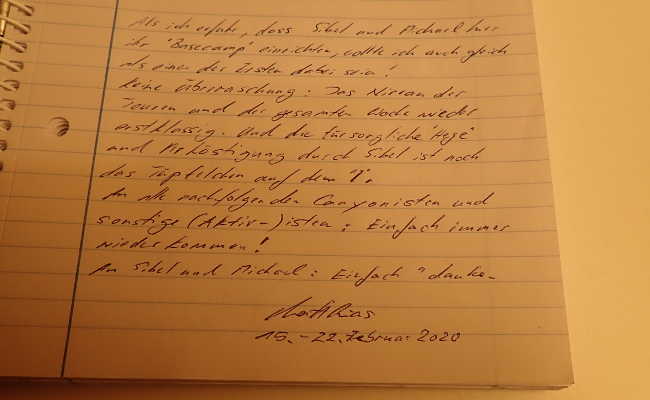 Als ich erfuhr, dass Sibel und Michael hier
ihr "Basecamp" einrichten, wollte ich auch gleich
als einer der Ersten dabei sein!
Keine Überraschung: Das Niveau der
Touren und der gesamten Woche wieder
erstklassig. Und die fürsorgliche "Hege"
und Beköstigung durch Sibel ist noch
das Tüpfelchen auf dem "i".
An alle nachfolgenden Canyonisten und
sonstige (Aktiv-)isten: Einfach immer
wieder kommen!
An Sibel und Michael: Einfach "danke"
Matthias
15. - 22. Februar 2020